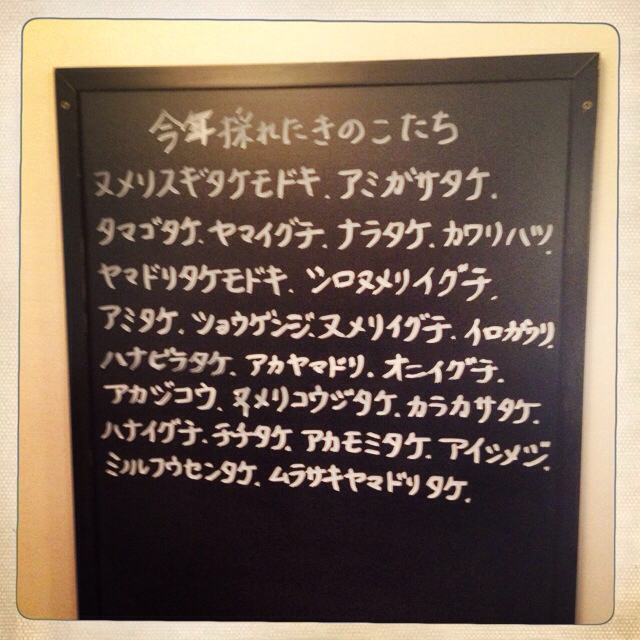 今年採れたきのこたち
ヌメリスギタケモドキ、アミガサタケ、
タマゴタケ、ヤマイグチ、ナラタケ、カワリハツ、
ヤマドリタケモドキ、シロヌメリイグチ、
アミタケ、ショウゲンジ、ヌメリイグチ、イロガワリ、
ハナビラタケ、アカヤマドリ、オニイグチ、
アカジコウ、ヌメリコウジタケ、カラカサタケ、
ハナイグチ、チチタケ、アカモミタケ、アイシメジ、
ミルフウセンタケ、ムラサキヤマドリタケ、